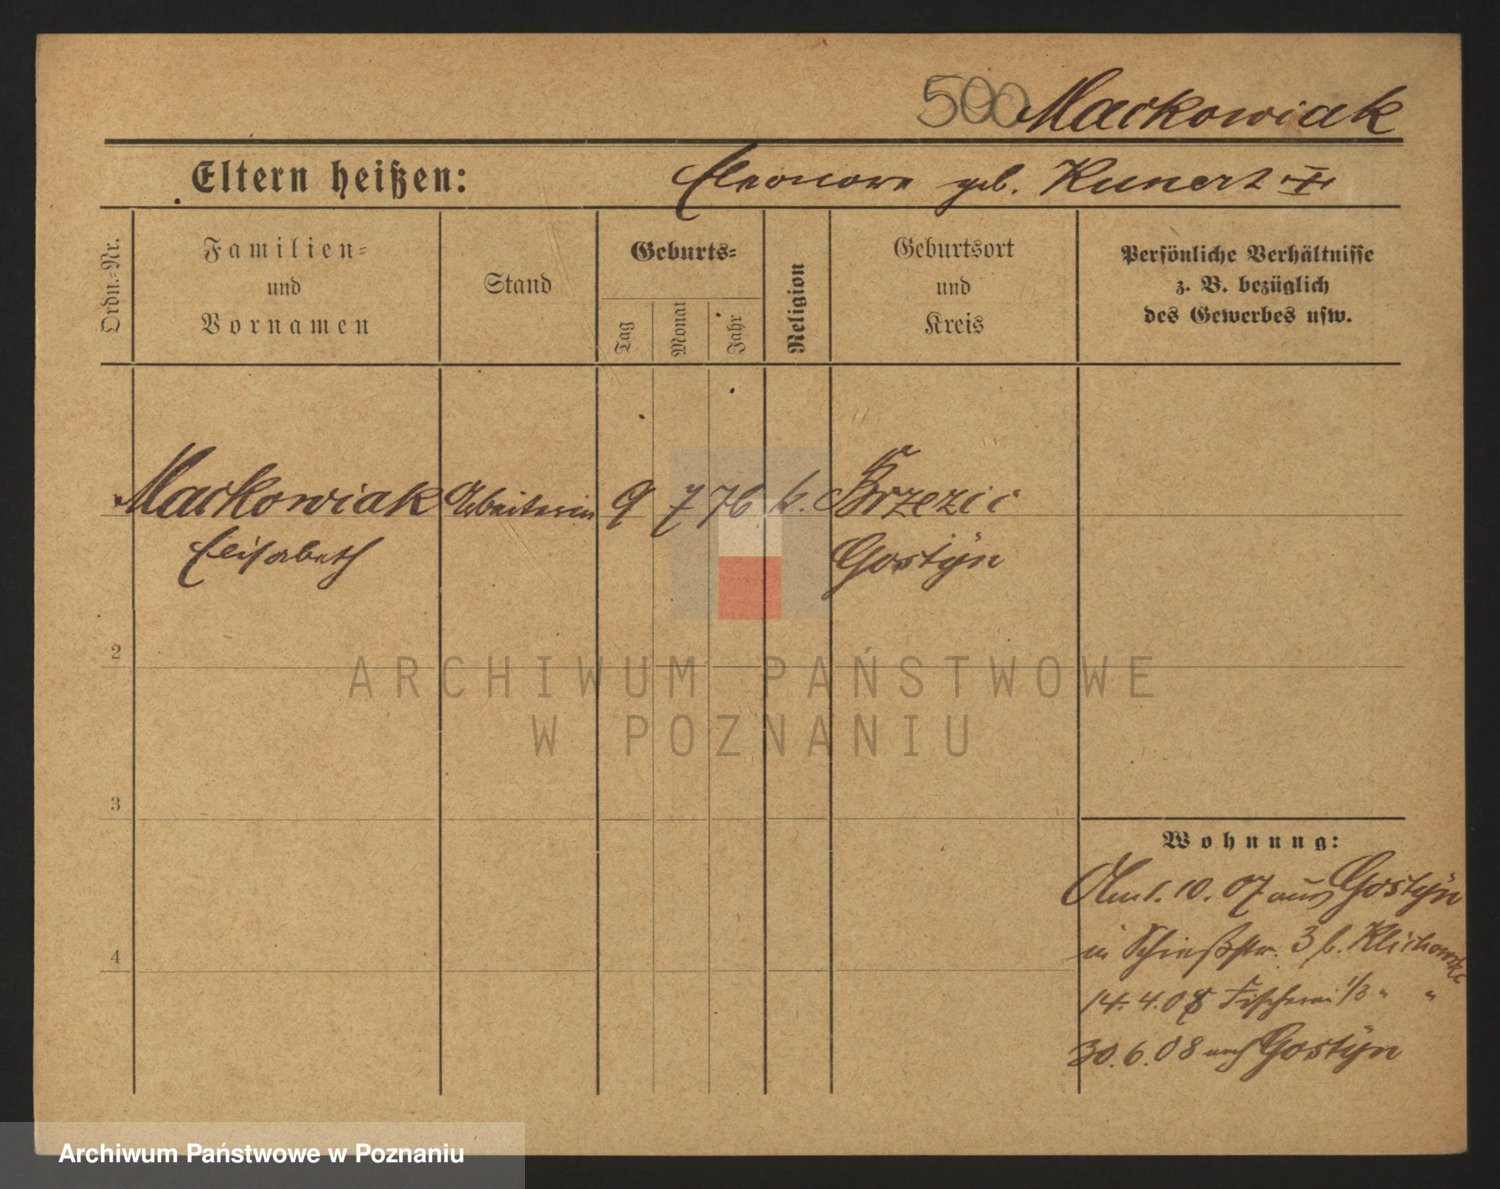 500 Mackowiak
Eltern heißen: Eleonore geb. Kunert
Ordn.-Nr.
Familien-
und
Vornamen
Stand
Geburts-
Tag
Monat
Jahr
Religion
Geburtsort
und
Kreis
Persönliche Verhältnisse
z. B. bezüglich
des Gewerbes usw.
Mackowiak Arbeiterin 9 7 76 k. Brzezie
Elisabeth Gostÿn
2
ARCHIWUM PAŃSTWOWE
W POZNANIU
3
Wohnung:
1.10.07 aus Gostÿn
in Schießstr. 3 b. Klichowski
14.4.08 Fischerei 1/3 " "
4
30.6.08 nach Gostÿn
Archiwum Państwowe w Poznaniu